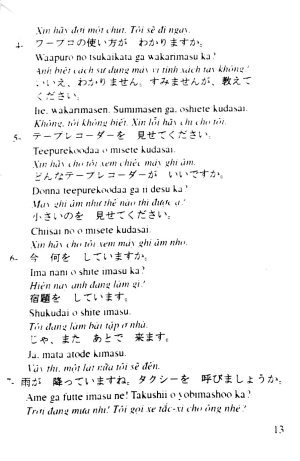 Xin hãy đợi một chút. Tôi sẽ đi ngay.
4- ワープロの使い方が わかりますか。
Waapuro no tsukaikata ga wakarimasu ka?
Anh biết cách sử dụng máy vi tính xách tay không?
いいえ、わかりません。すみませんが、教えて
ください。
Iie, wakarimasen. Sumimasen ga, oshiete kudasai.
Không, tôi không biết. Xin lỗi hãy chỉ cho tôi.
5- テープレコーダーを 見せてください。
Teepurekoodaa o misete kudasai.
Xin hãy cho tôi xem chiếc máy ghi âm.
どんなテープレコーダーが いいですか。
Donna teepurekoodaa ga ii desu ka?
Máy ghi âm như thế nào thì được ạ?
小さいのを 見せてください。
Chiisai no o misete kudasai.
Xin hãy cho tôi xem máy ghi âm nhỏ.
6- 今 何を していますか。
Ima nani o shite imasu ka?
Hiện nay anh đang làm gì?
宿題を しています。
Shukudai o shite imasu.
Tôi đang làm bài tập ở nhà.
じゃ、また あとで 来ます。
Ja, mata atode kimasu.
Vậy thì, một lát nữa tôi sẽ đến.
7- 雨が 降っていますね。タクシーを 呼びましょうか。
Ame ga futte imasu ne! Takushii o yobimashoo ka?
Trời đang mưa nhỉ! Tôi gọi xe tắc-xi cho ông nhé?
13